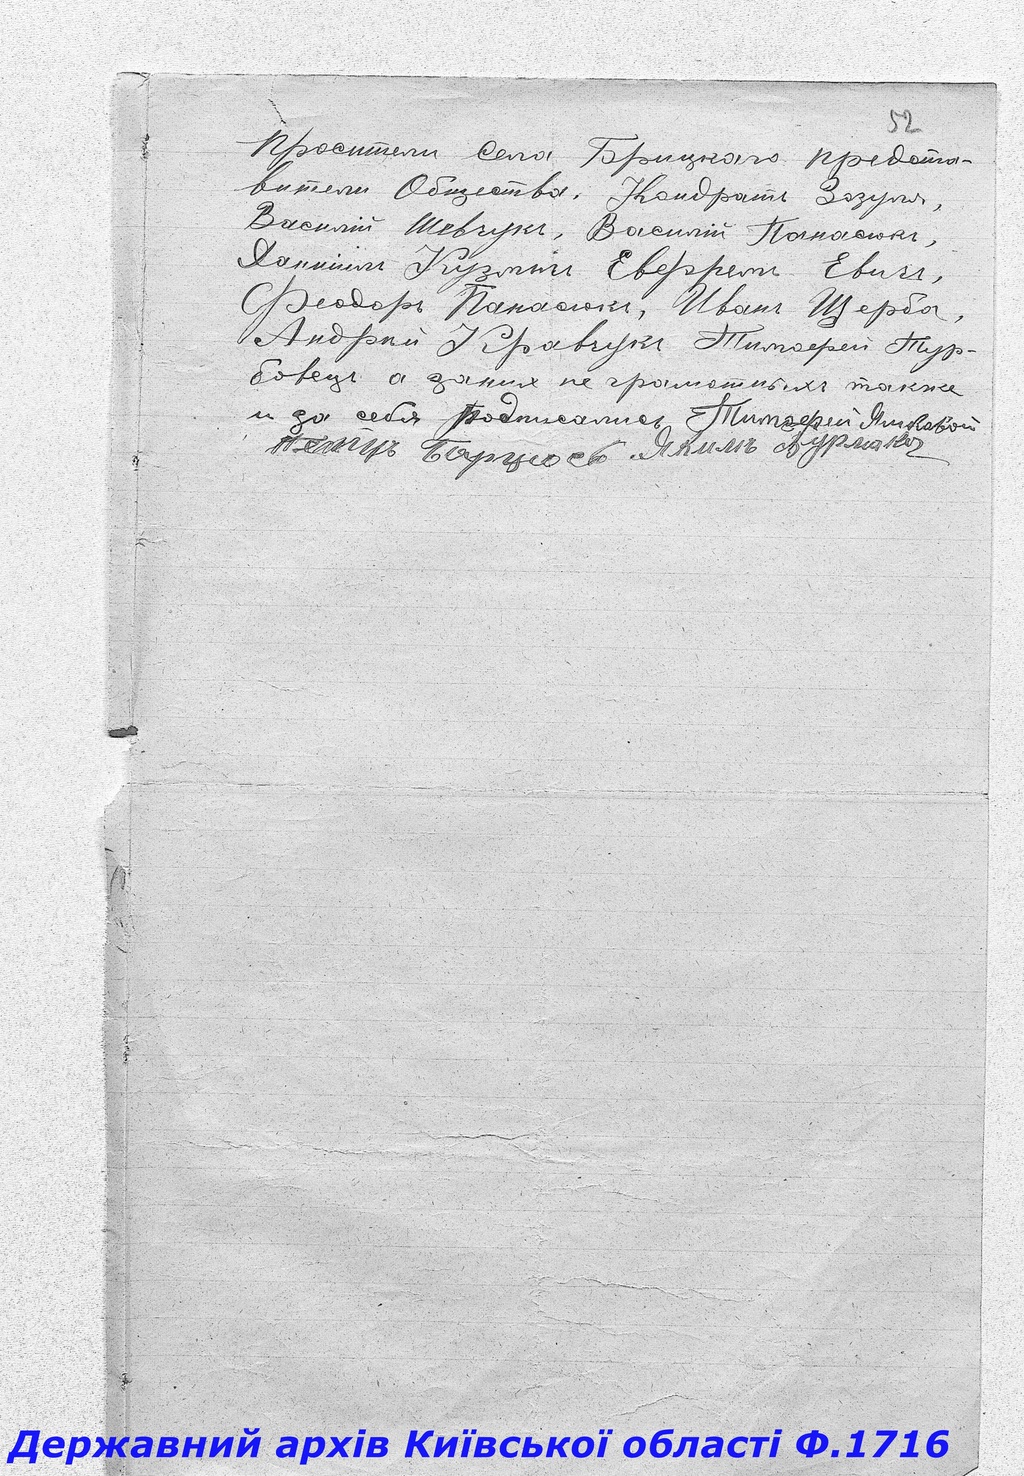 52
Просители села Брицкаго предста-
вители Общества. Кондратъ Зозуля,
Василій Шевчукъ, Василій Панасюкъ,
Даніилъ Кузмичъ Евфремъ Евичъ,
Феодоръ Панасюкъ, Иванъ Щерба,
Андрей Кравчукъ Тимофей Тур-
бовецъ а заних не грамотныхъ также
и за себя подписались Тимофей
Якимъ
Державний архів Київської області Ф.1716